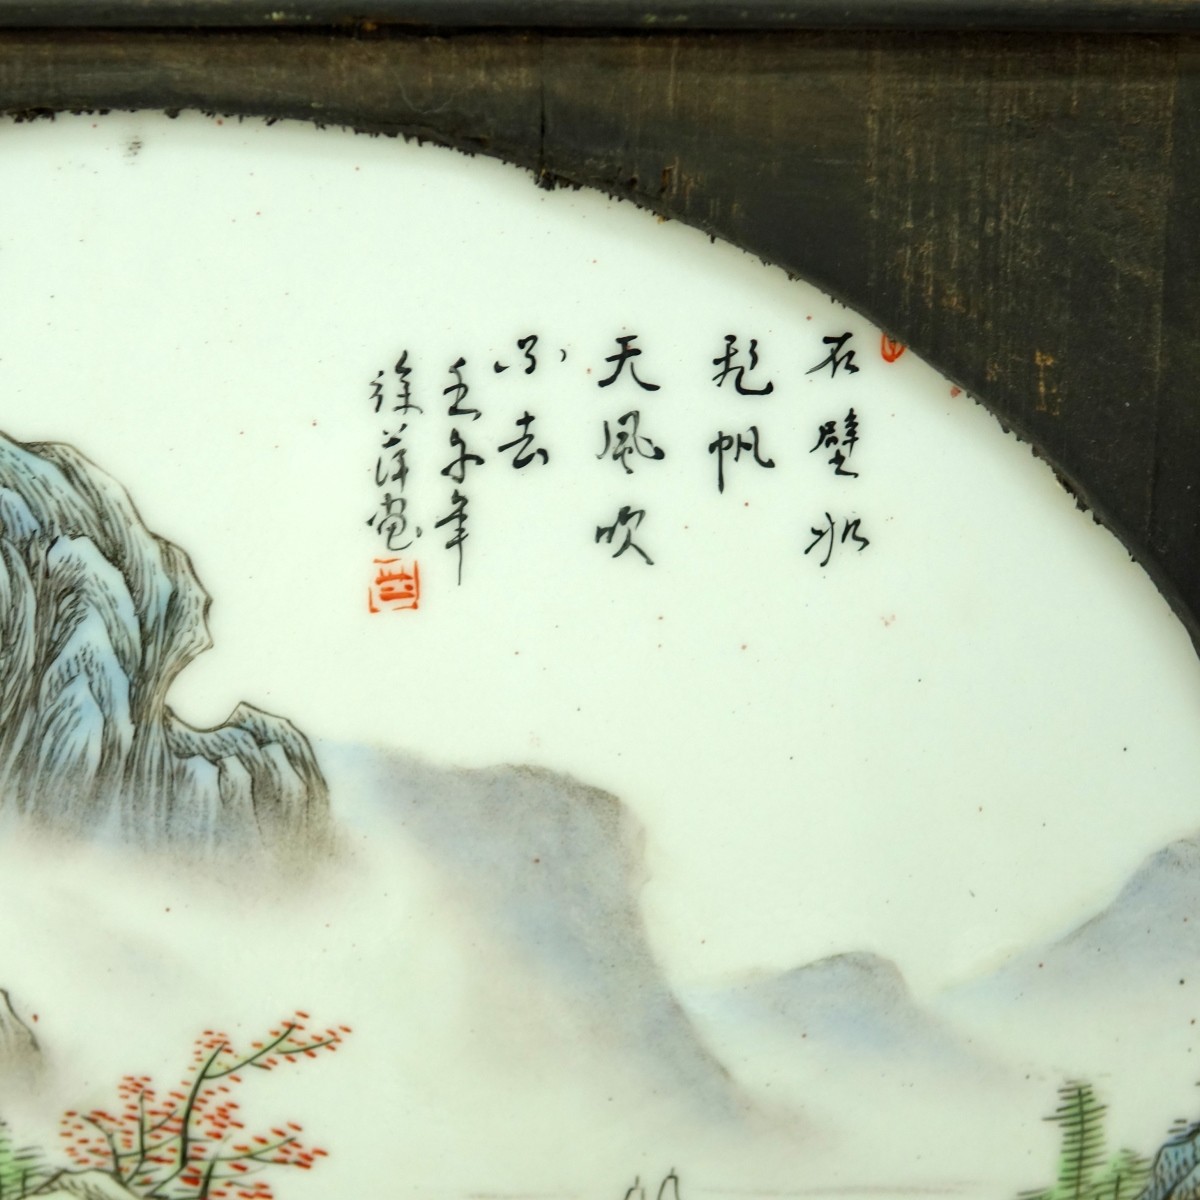 石壁
飛帆
天風吹
不去
壬午年
徐萍畫